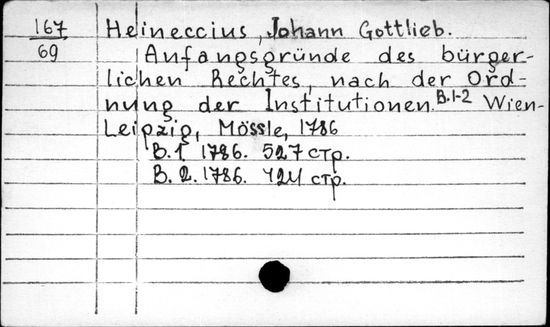 167 Heineccius, Johann Gottlieb.
69 Anfangsgründe des bürger-
lichen Rechtes, nach der Ord-
nung der Institutionen. B.1-2 Wien-
Leipzig, Mössle, 1786
B. 1 1786. 527 стр.
B. 2. 1786. 424 стр.